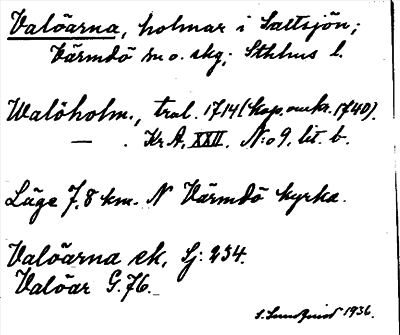 Valöarna, holmar i Saltsjön;
Värmdö sn o. skg; Sthlms l.
Walöholm., tral. 1714 (kop. omkr. 1740).
— . Kr. A. XXII. N:o 9. lit. b.
Läge 7,8 km. N Värmdö kyrka.
Valöarna ek. Sj: 234.
Valöar G. 76.
S. Lundquist 1936.